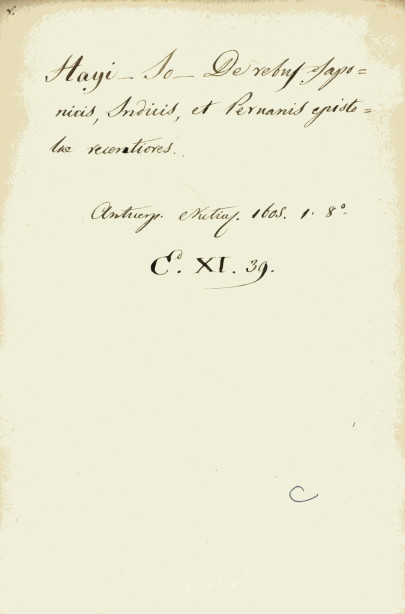 Hayi - Jo - De rebus Japo=
nicis, Indicis, et Peruanis episto=
lae recentiores.
Antuerp. Nutius. 1605. 1. 8°.
C^d. XI. 39.
C